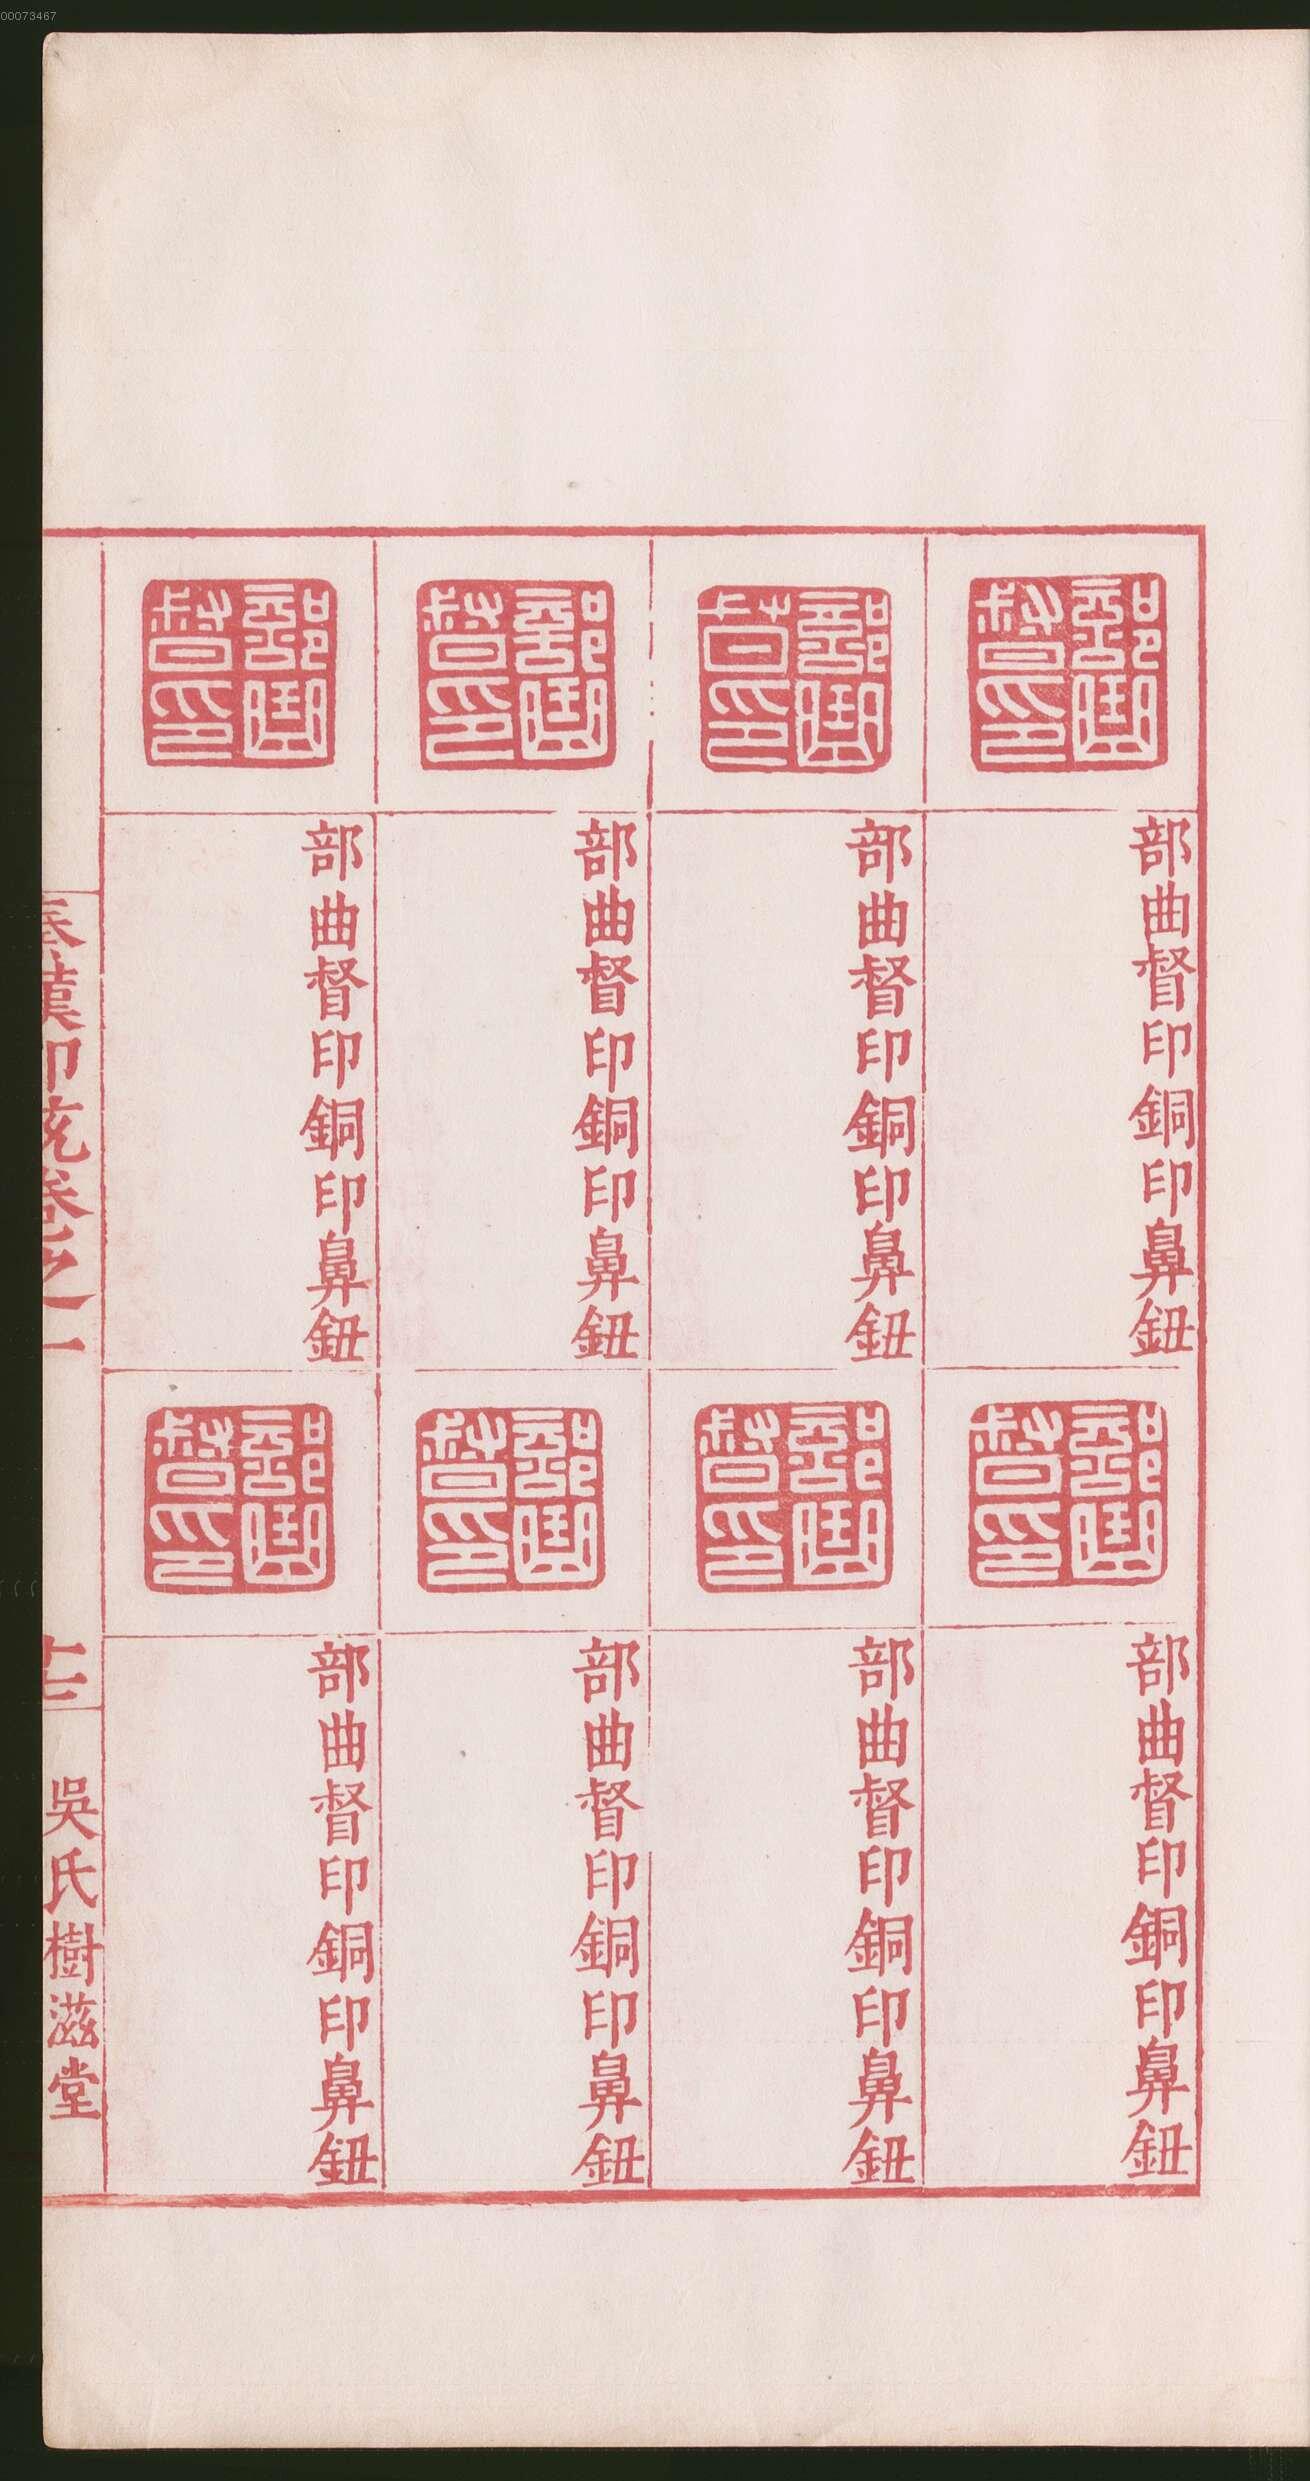 00073467
部曲督印
部曲督印銅印鼻鈕
部曲督印
部曲督印銅印鼻鈕
部曲督印
部曲督印銅印鼻鈕
部曲督印
部曲督印銅印鼻鈕
部曲督印
部曲督印銅印鼻鈕
部曲督印
部曲督印銅印鼻鈕
部曲督印
部曲督印銅印鼻鈕
部曲督印
部曲督印銅印鼻鈕
秦漢印統卷之一
十七
吳氏樹滋堂